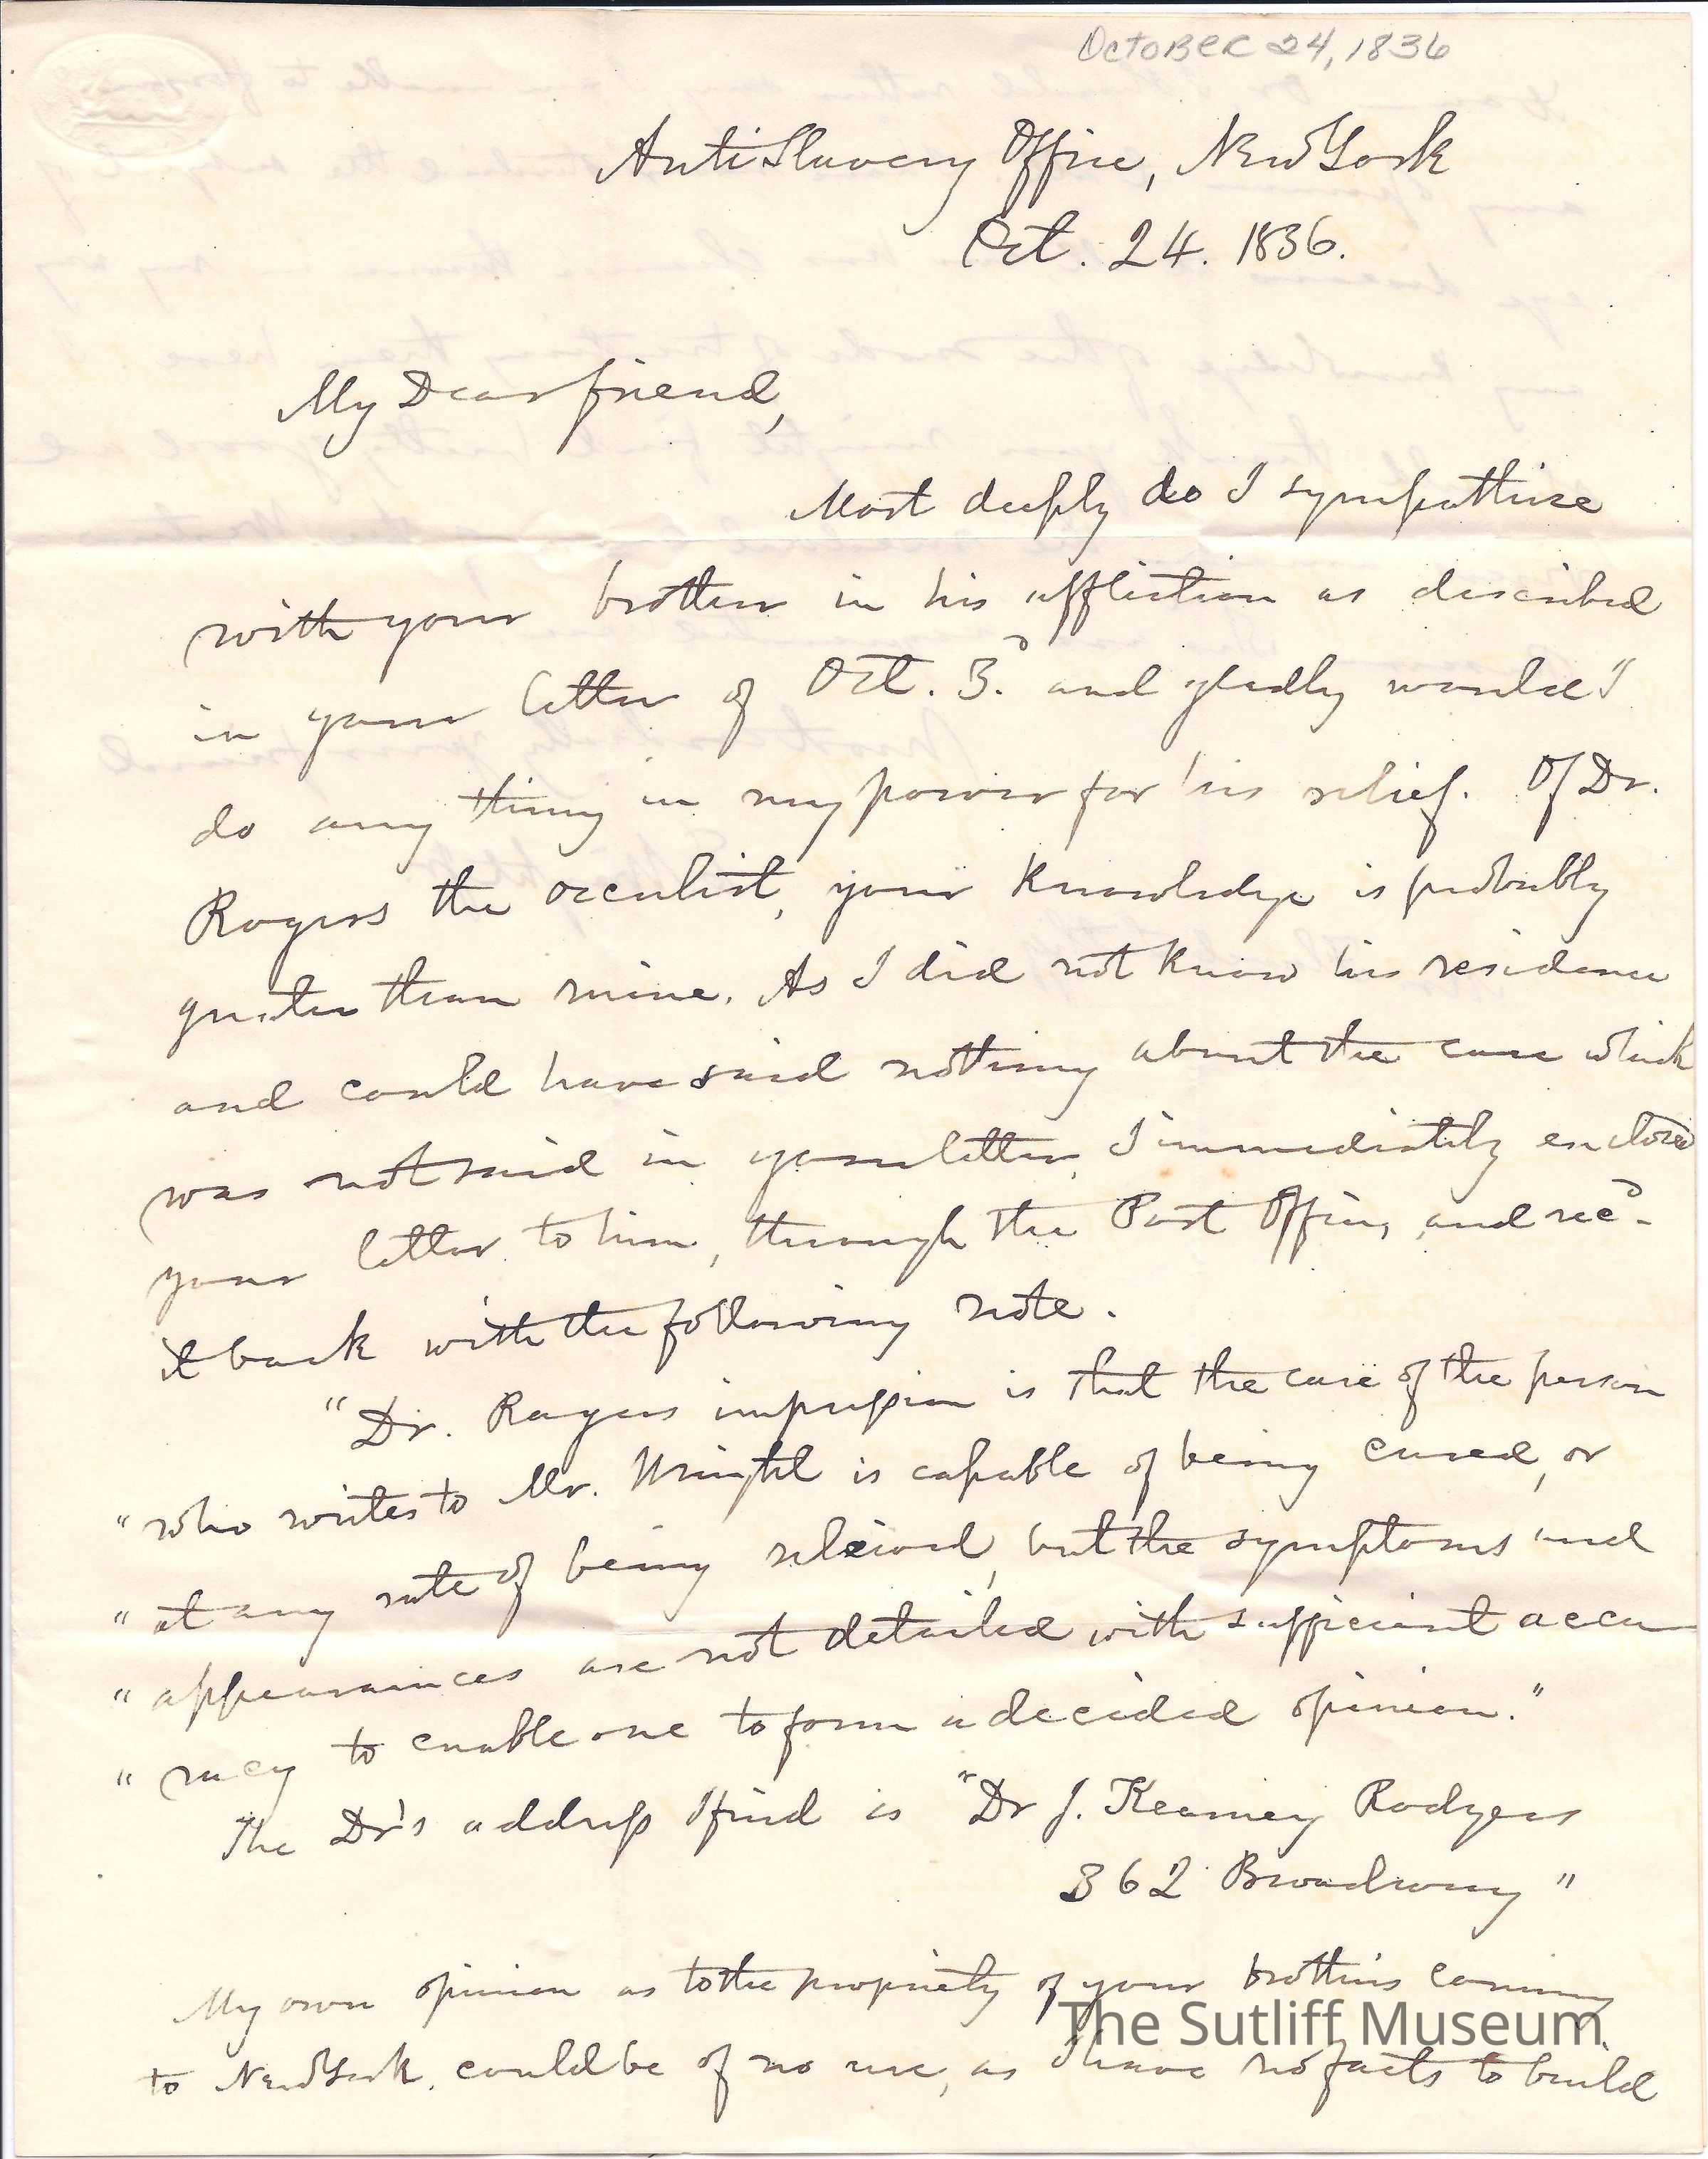 October 24, 1836
Anti Slavery Office, New York
Oct. 24. 1836.
My Dear friend,
Most deeply do I sympathise
with your brother in his affliction as described
in your letter of Oct. 3d. and gladly would I
do any thing in my power for his relief. Of Dr.
Rogers the occulist, your knowledge is probably
greater than mine. As I did not know his residence
and could have said nothing about the case which
was not said in your letter, I immediately enclosed
your letter to him, through the Post Office, and recd.
it back with the following note.
"Dr. Rogers impression is that the case of the person
" who writes to Mr. Wright is capable of being cured, or
" at any rate of being relieved, but the symptoms and
" appearances are not detailed with sufficient accu
" racy to enable one to form a decided opinion."
The Dr's address I find is "Dr J. Kearney Rodgers
362 Broadway"
My own opinion as to the propriety of your brothers coming
to New York, could be of no use, as I have no facts to build
The Sutliff Museum